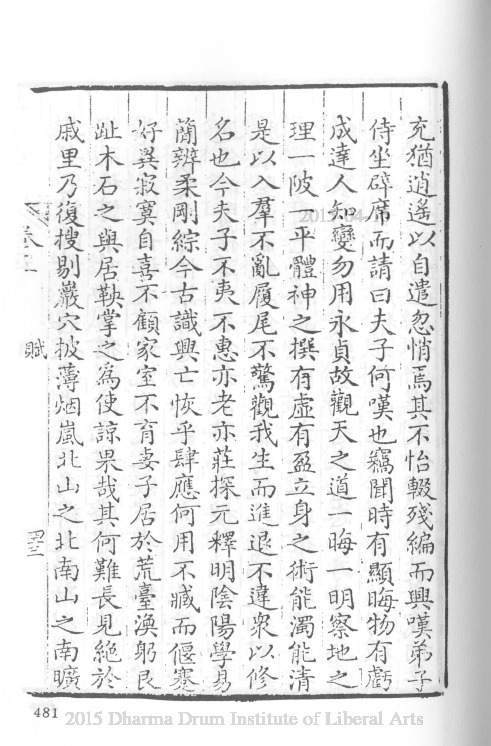 充猶逍遙以自遣忽悄焉其不怡輟殘編而興嘆弟子
侍坐辟席而請曰夫子何嘆也竊聞時有顯晦物有虧
成達人知變勿用永貞故觀天之道一晦一明察地之
理一陂一平體神之撰有虛有盈立身之術能濁能清
是以入羣不亂履尾不驚觀我生而進退不違衆以修
名也今夫子不夷不惠亦老亦莊探元釋明陰陽學易
簡辨柔剛綜今古識興亡恢乎肆應何用不臧而偃蹇
好異寂寞自喜不顧家室不育妻子居於荒臺渙躬艮
趾木石之與居鞅掌之為使諒果哉其何難長見絕於
戚里乃復搜剔巖穴披薄烟嵐北山之北南山之南曠
賦
481
2015 Dharma Drum Institute of Liberal Arts